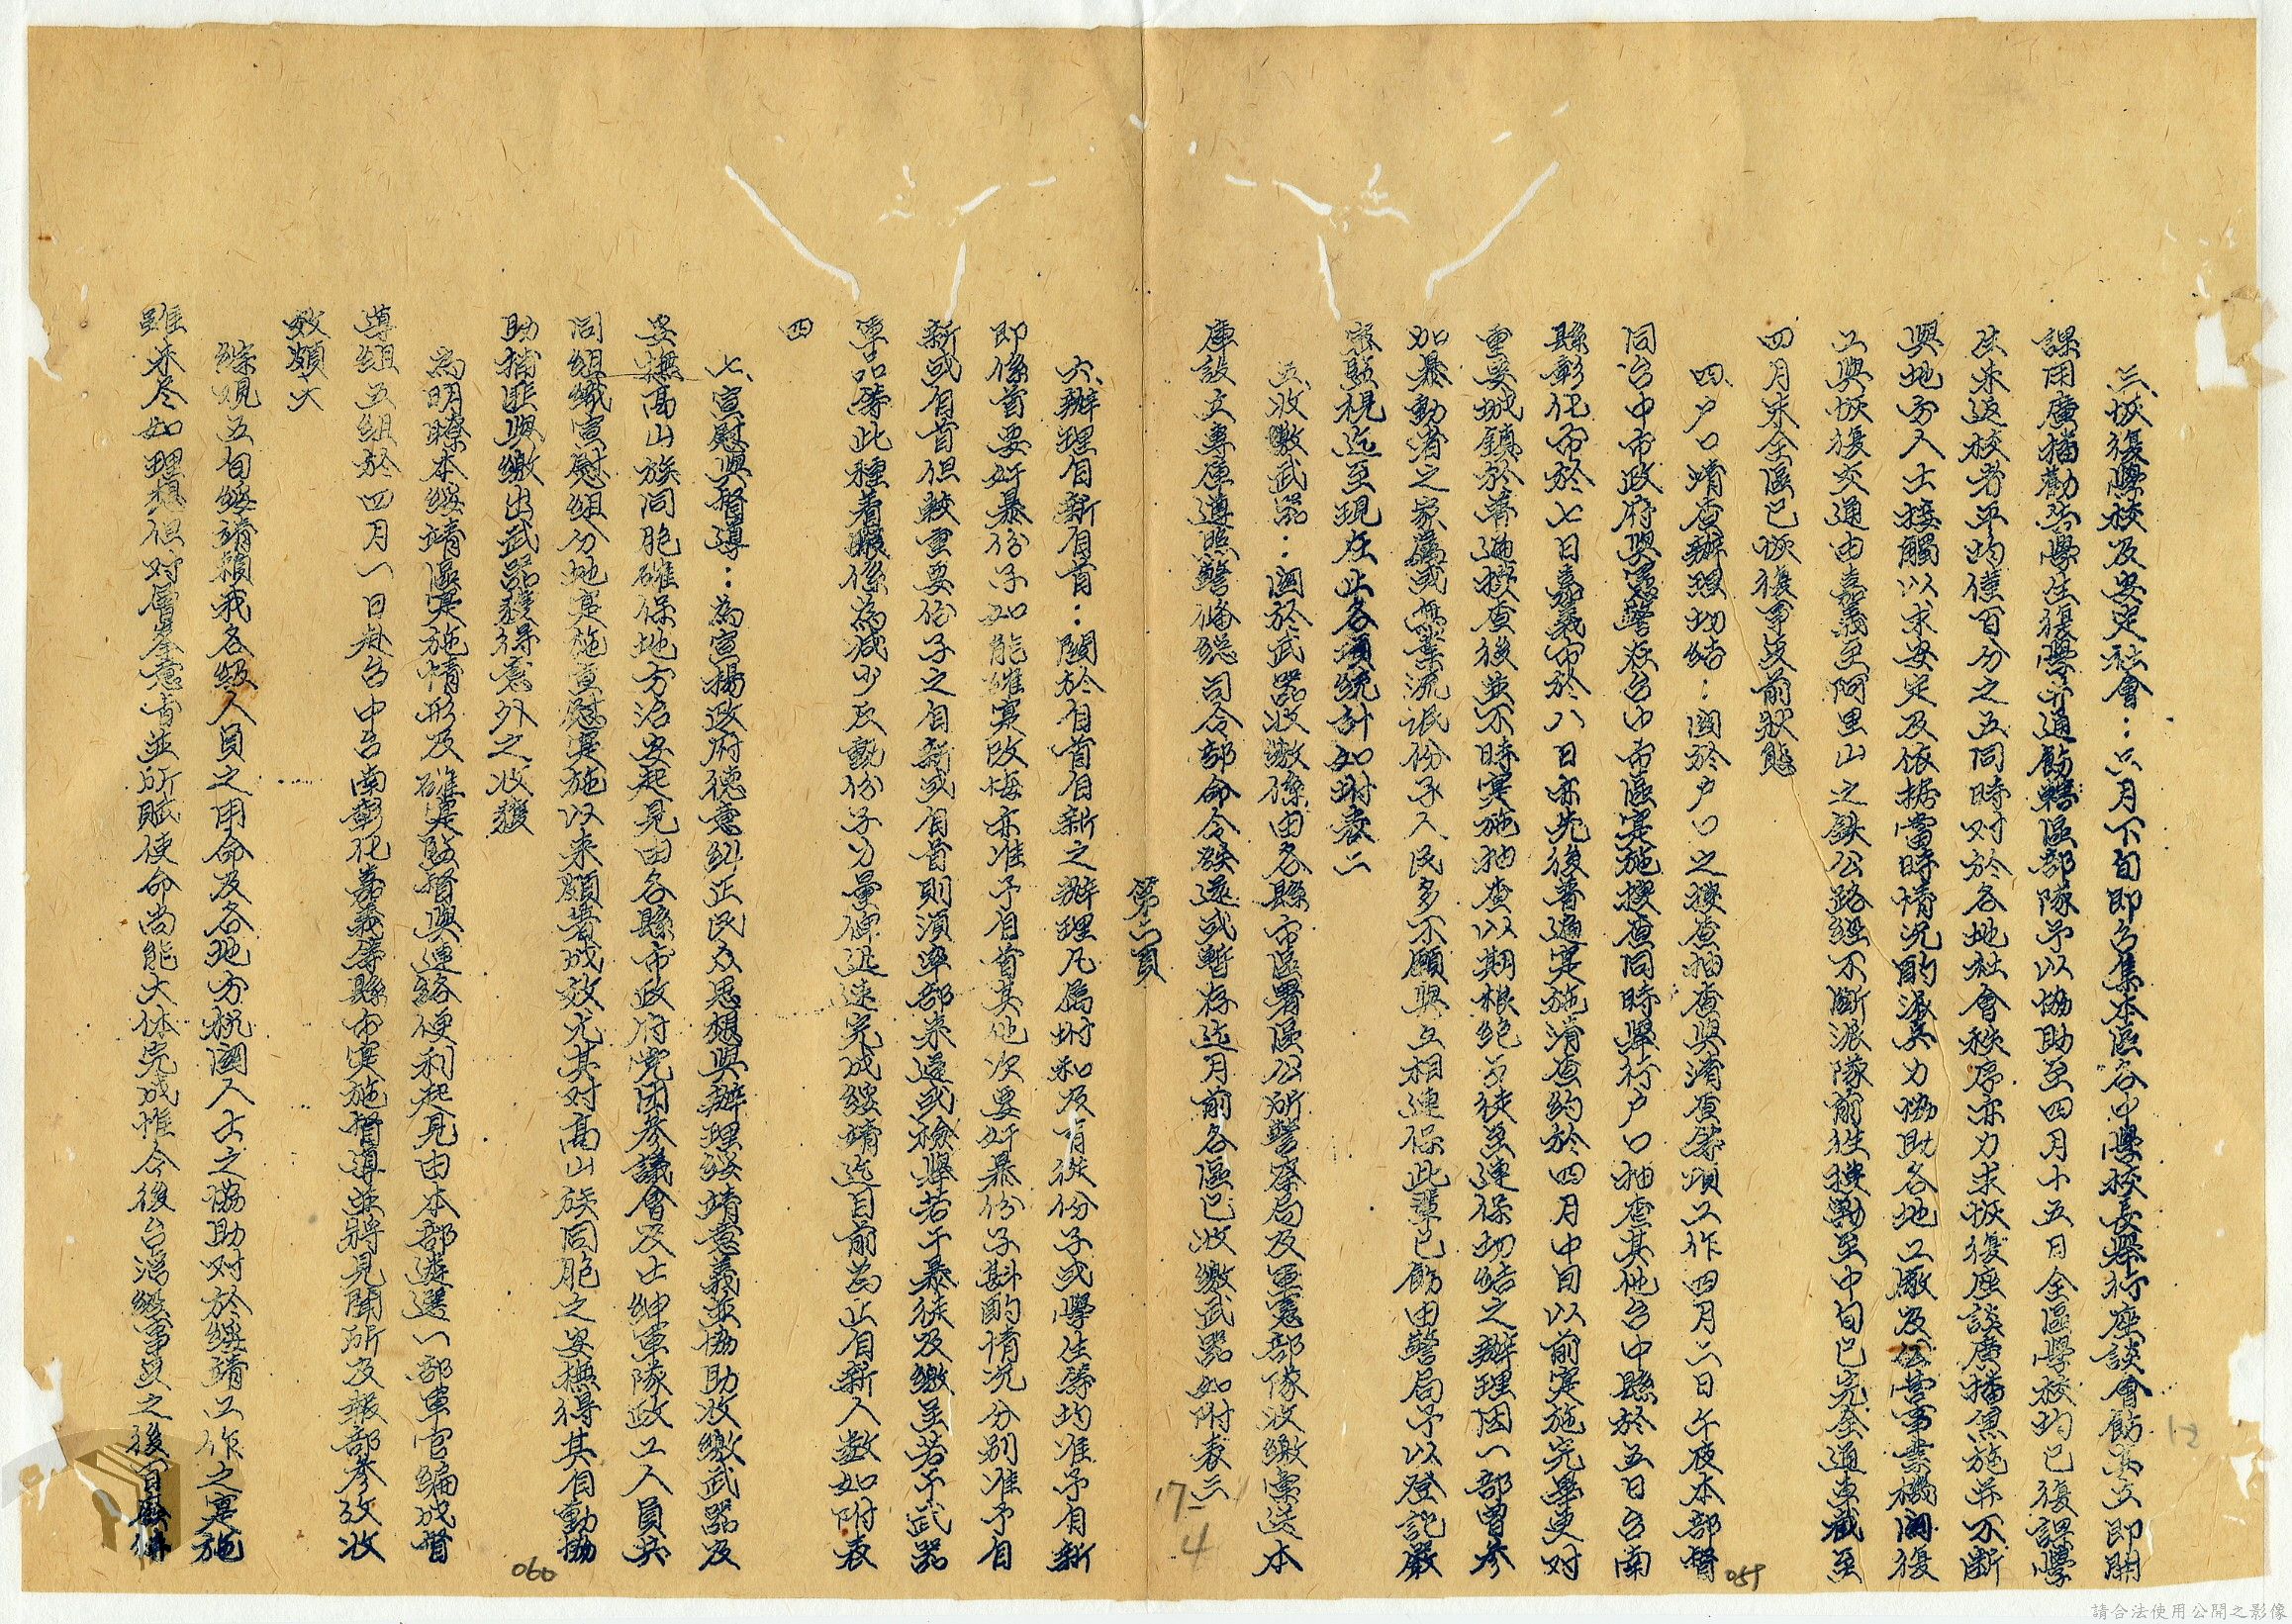 三、恢復學校及安定社會：三月下旬即召集本區各中學校長舉行座談會飭其立即開
課用廣播勸告學生復學并通飭轄區部隊予以協助至四月十五日全區學校均已復課學
生未返校者平均僅百分之五同時对於各地社會秩序亦力求恢復座談廣播兼施并不断
與地方人士接觸以求安定及依据當時情况酌派兵力協助各地工廠及公营事業機関復
工與恢復交通由嘉義至阿里山之鉄公路經不断派隊前往搜勦至中旬已完全通車截至
四月末全區已恢復事变前狀態
四、户口清查辦理切结：関於户口之搜查抽查與清查等項工作四月二日午夜本部督
同台中市政府與憲警在台中市區实施搜查同時舉行户口抽查其他台中縣於五日台南
縣彰化市於七日嘉義市於八日亦先後普遍实施清查約於四月中旬以前实施完畢更对
重要城鎮於普遍搜查後並不時实施抽查以期根绝歹徒至連保切结之辦理因一部曾参
加暴動者之家屬或無業流氓份子人民多不願與互相連保此輩已飭由警局予以登記嚴
密監視迄至現在止各項統計如附表二
五、收繳武器：関於武器收繳係由各縣市區署區公所警察局及軍憲部隊收繳彙送本
庫設立專庫遵照警俻総司令部命令発还或暫存迄月前各區已收缴武器如附表三
第二頁
17-4
六、辦理自新自首：関於自首自新之辦理凡属附和及盲從份子或學生等均准予自新
即係首要奸暴份子如能確实改悔亦准予自首其他次要奸暴份子斟酌情况分别准予自
新或自首但較重要份子之自新或自首則須率部来返或檢舉若干暴徒及繳呈若干武器
軍品等此種着眼係為减少反動份子力量俾迅速完成綏靖迄目前為止自新人数如附表
四
七、宣慰與督導：為宣揚政府德意糾正民众思想與辦理綏靖意義並協助收繳武器及
安撫高山族同胞確保地方治安起見由各縣市政府党团参議會及士紳軍隊政工人員共
同組織宣慰組分地实施宣慰实施以来頗著成效尤其对高山族同胞之安撫得其自動協
助捕匪與繳出武器獲得意外之收獲
為明瞭本綏靖區实施情形及確实監督與連絡便利起見由本部遴選一部軍官編成督
導組五組於四月一日赴台中台南彰化嘉義等縣市实施督導並將見聞所及報部参攷收
效頗大
综观五旬綏靖賴我各级人員之用命及各地方机関人士之協助对於綏靖工作之实施
雖未尽如理想但对層峯意旨並所賦使命尚能大体完成惟今後台湾经事变之後百廢待
059
060
12
請合法使用公開之影像